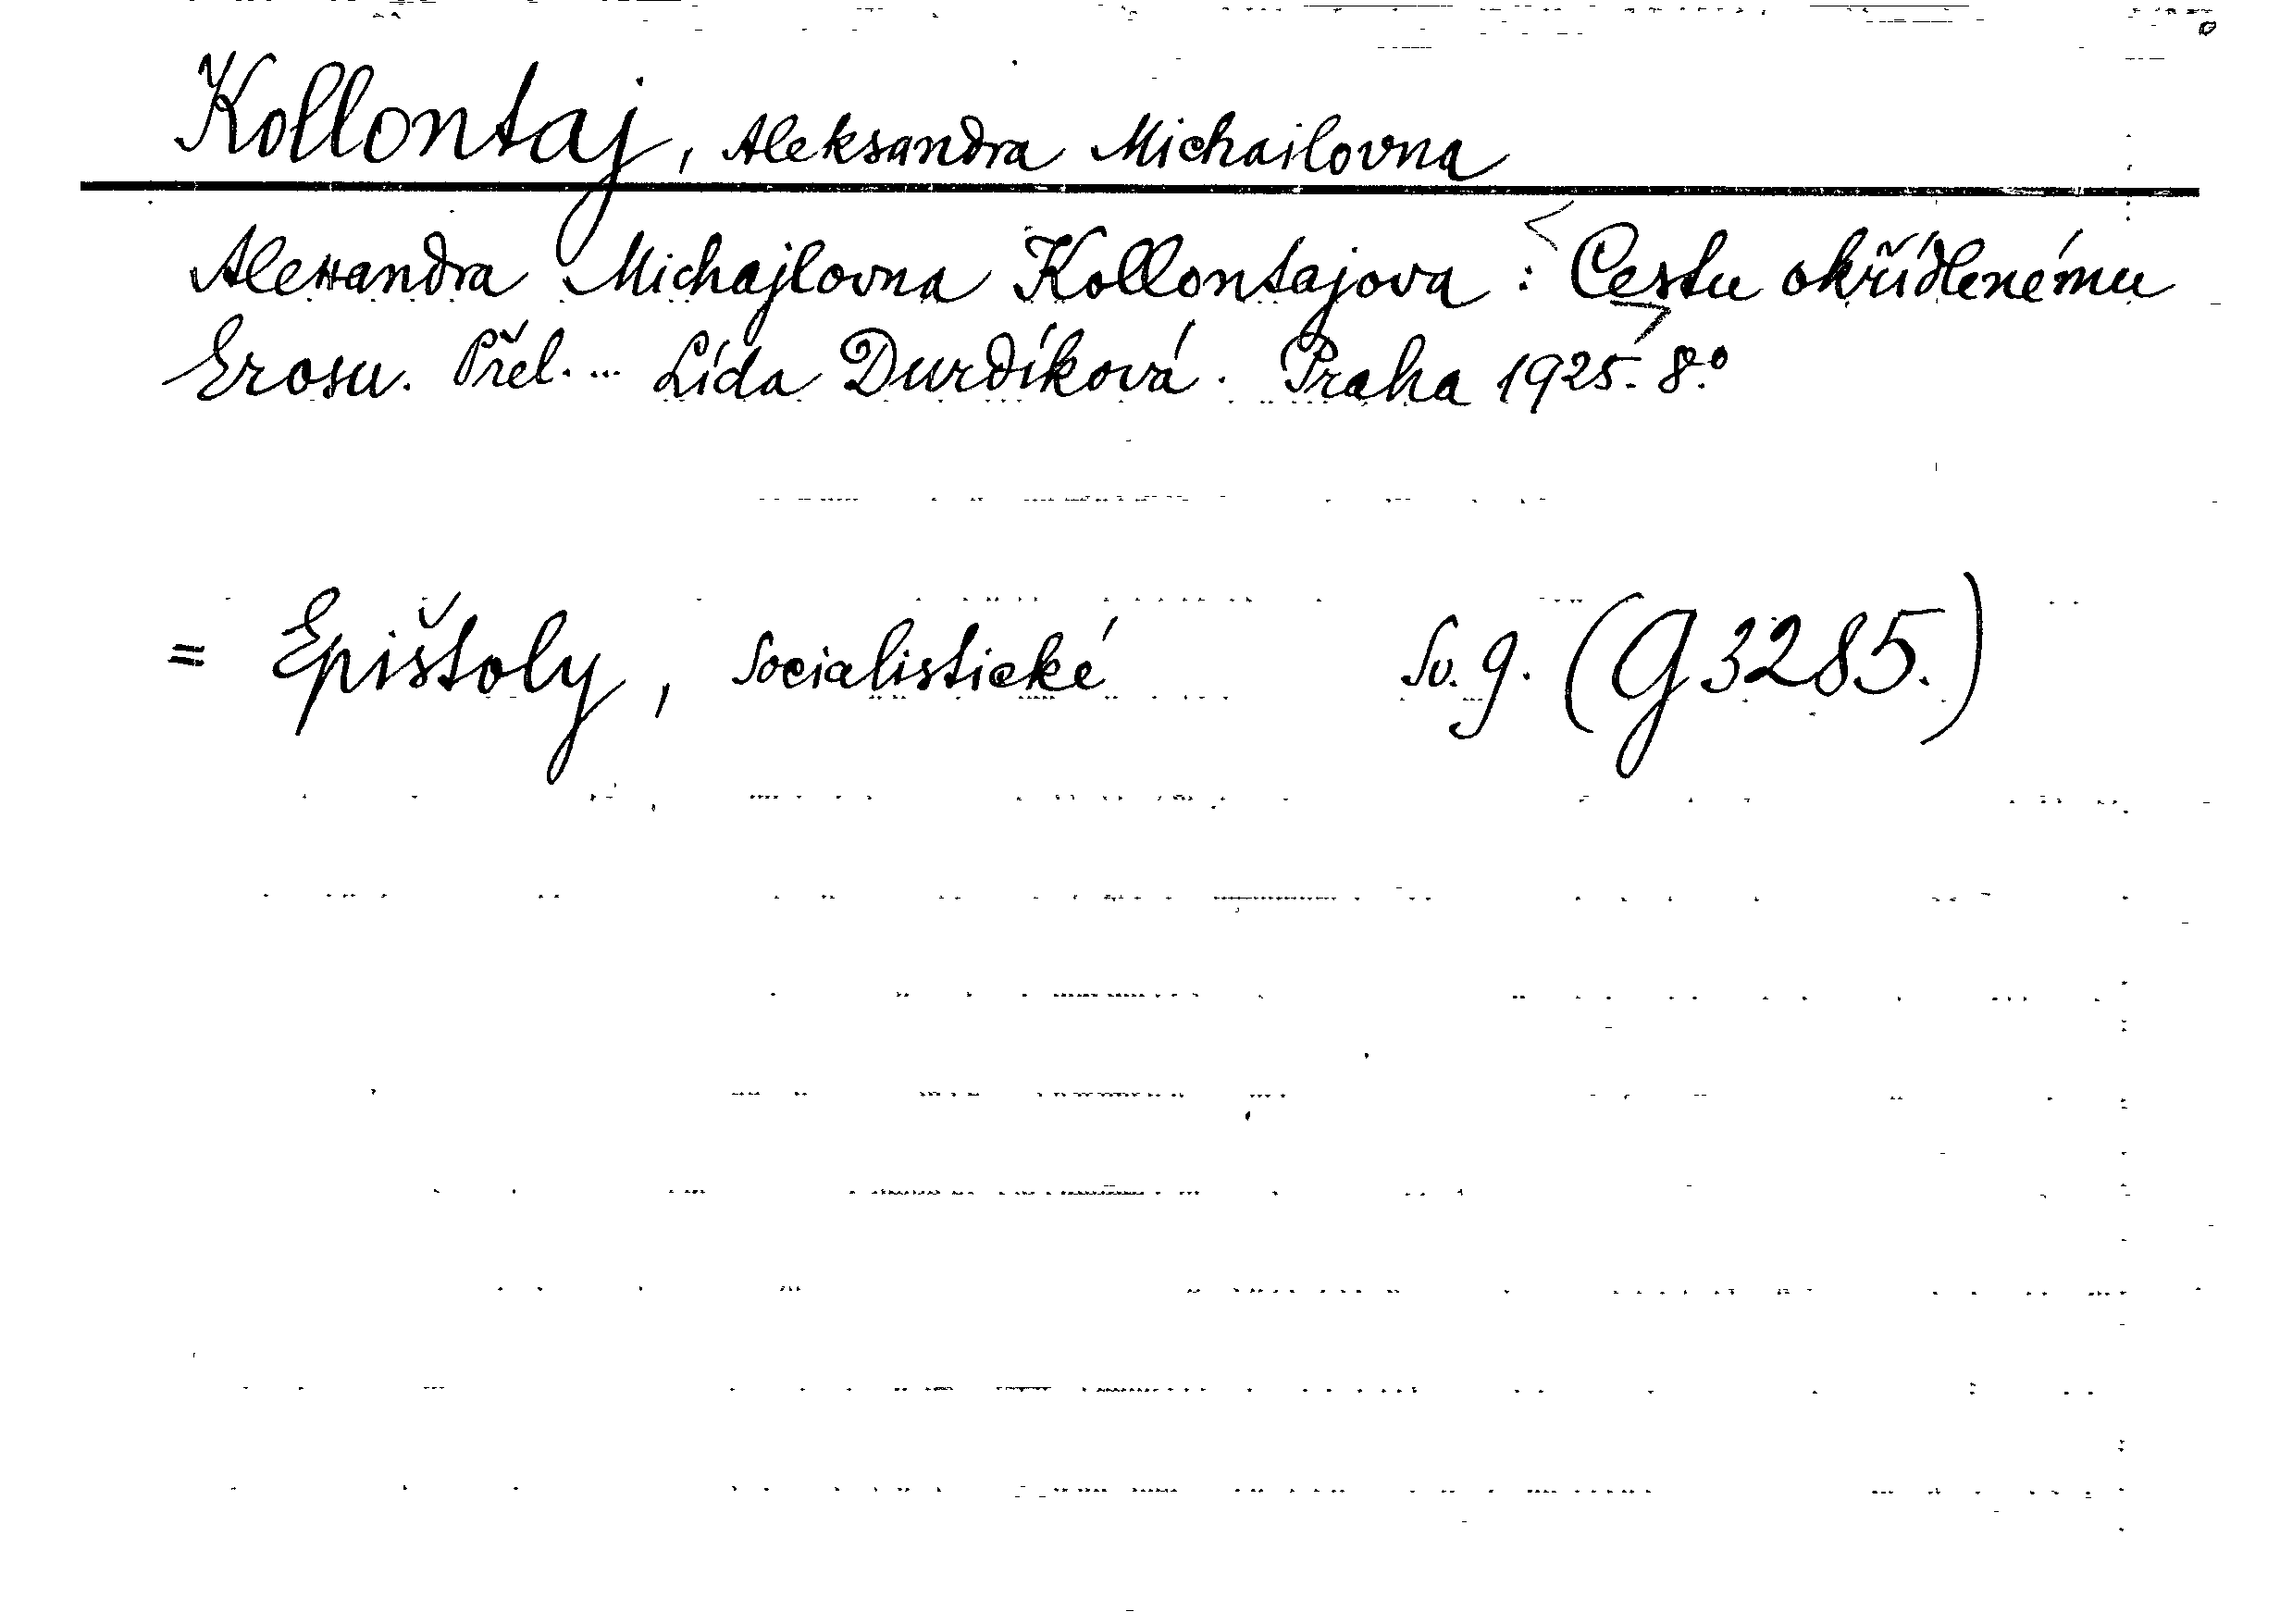 Kollontaj, Aleksandra Michailovna
Alexandra Michajlovna Kollontajova : <Cestu okřídlenému
Erosu. Přel. ... Lída Durdíková. Praha 1925. 8.°
= Epištoly, Socialistické Sv. 9. (G 3285.)